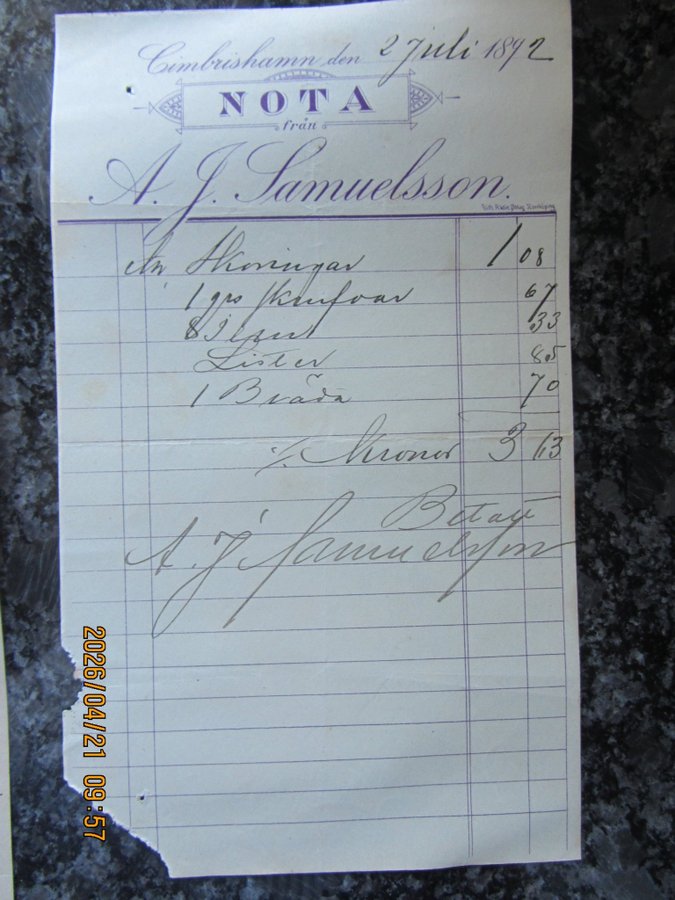 Cimbrishamn den 2 Juli 1892
NOTA
från
A. J. Samuelsson.
Skoningar 1 08
1 grs skrufvar 67
8 33
Lister 85
1 Bräda 70
Kronor 3 63
Betalt
A. J. Samuelsson
2026/04/21 09:57